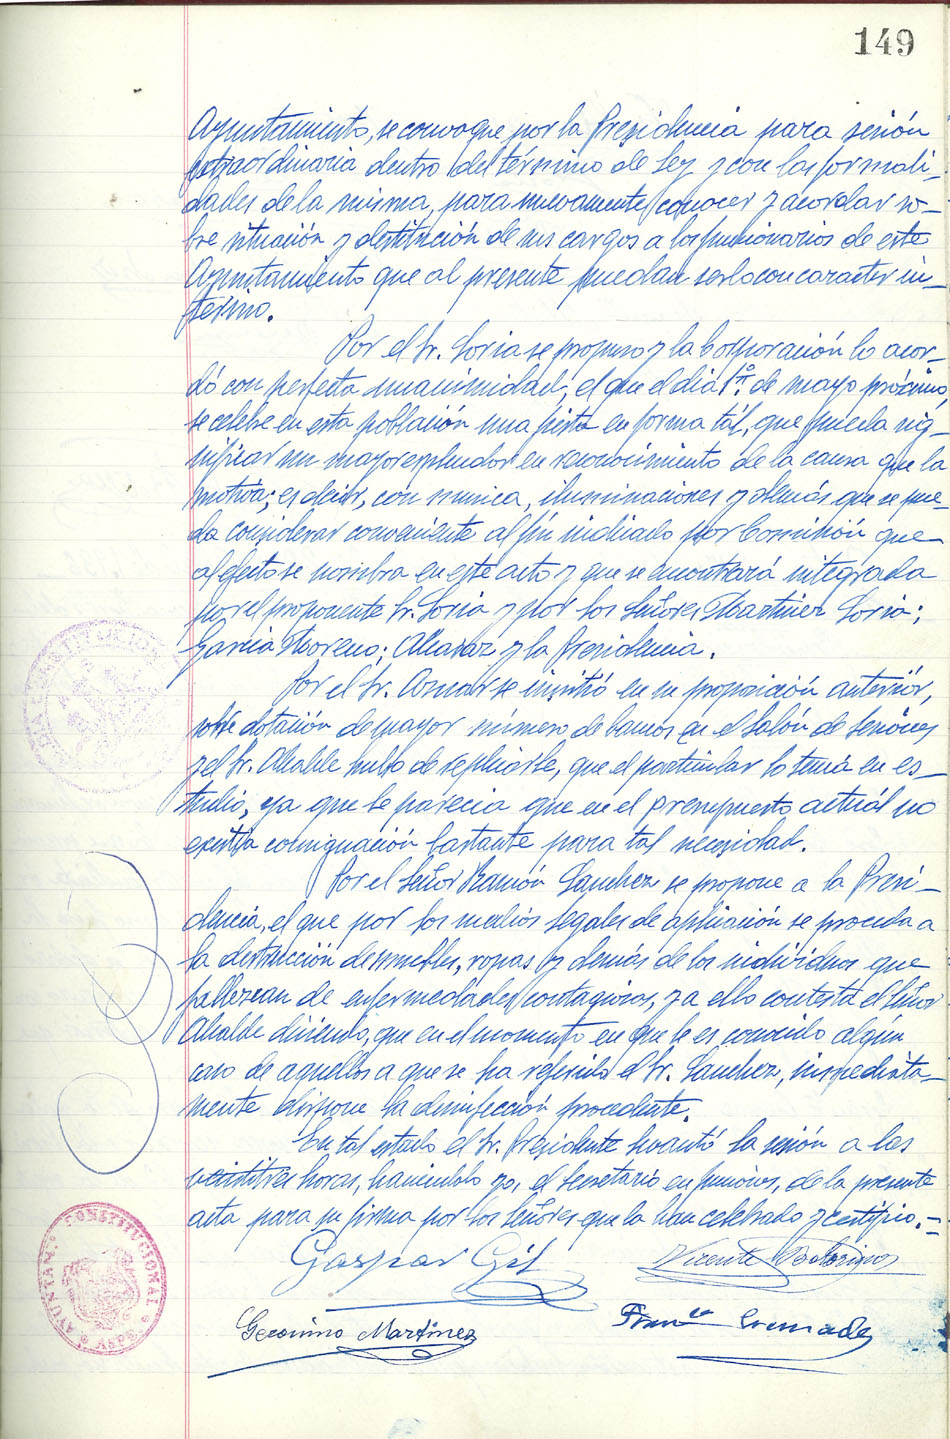 149
Ayuntamiento, se convoque, por la Presidencia para sesión
extraordinaria dentro del término de Ley y con las formali-
dades de la misma, para nuevamente conocer y acordar so-
bre situación y destitución de sus cargos a los funcionarios de este
Ayuntamiento que al presente puedan serlo con caracter in-
terino.
Por el Sr. Soria se propuso y la Corporación lo acor-
dó con perfecta unanimidad, el que el dia 1º. de mayo próximo,
se celebre en esta población una fiesta en forma tál, que pueda sig-
nificar un mayor esplendor en reconocimiento de la causa que la
motiva; es decir, con musica, iluminaciones y demás que se pue-
da considerar conveniente al fín indicado por Comisión que
al efecto se nombra en este acto y que se encontrará integrada
por el proponente Sr. Soria y por los Señores Martinez Soria;
García Moreno; Alcaraz y la Presidencia.
Por el Sr. Aznar se insistió en su proposición anteriór,
sobre dotación de mayor número de bancos en el Salón de Sesiones
y el Sr. Alcalde hubo de replicarle, que el particular lo tenia en es-
tudio, ya que le parecia que en el presupuesto actuál no
existía consignación bastante para tal necesidad.
Por el Señor Ramón Sanchez se propone a la Presi-
dencia, el que por los medios legales de aplicación se proceda a
la destrucción de muebles, ropas y demás de los individuos que
fallezcan de enfermedades contagiosas, y a ello contesta el Señor
Alcalde diciendo, que en el momento en que le es conocido algún
caso de aquellos a que se ha referido el Sr. Sanchez, inmediata-
mente dispone la desinfección procedente.
En tal estado el Sr. Presidente levantó la sesión a las
veintitres horas, haciendolo yo, el Secretario en funcios, de la presente
acta para su firma por los Señores que la han celebrado y certifico.-
Gaspar Gil
Vicente
Geronimo Martinez
Franco Cremades
CONSTITUCIONAL
AYUNTAM. CONSTITUCIONAL * ASPE *